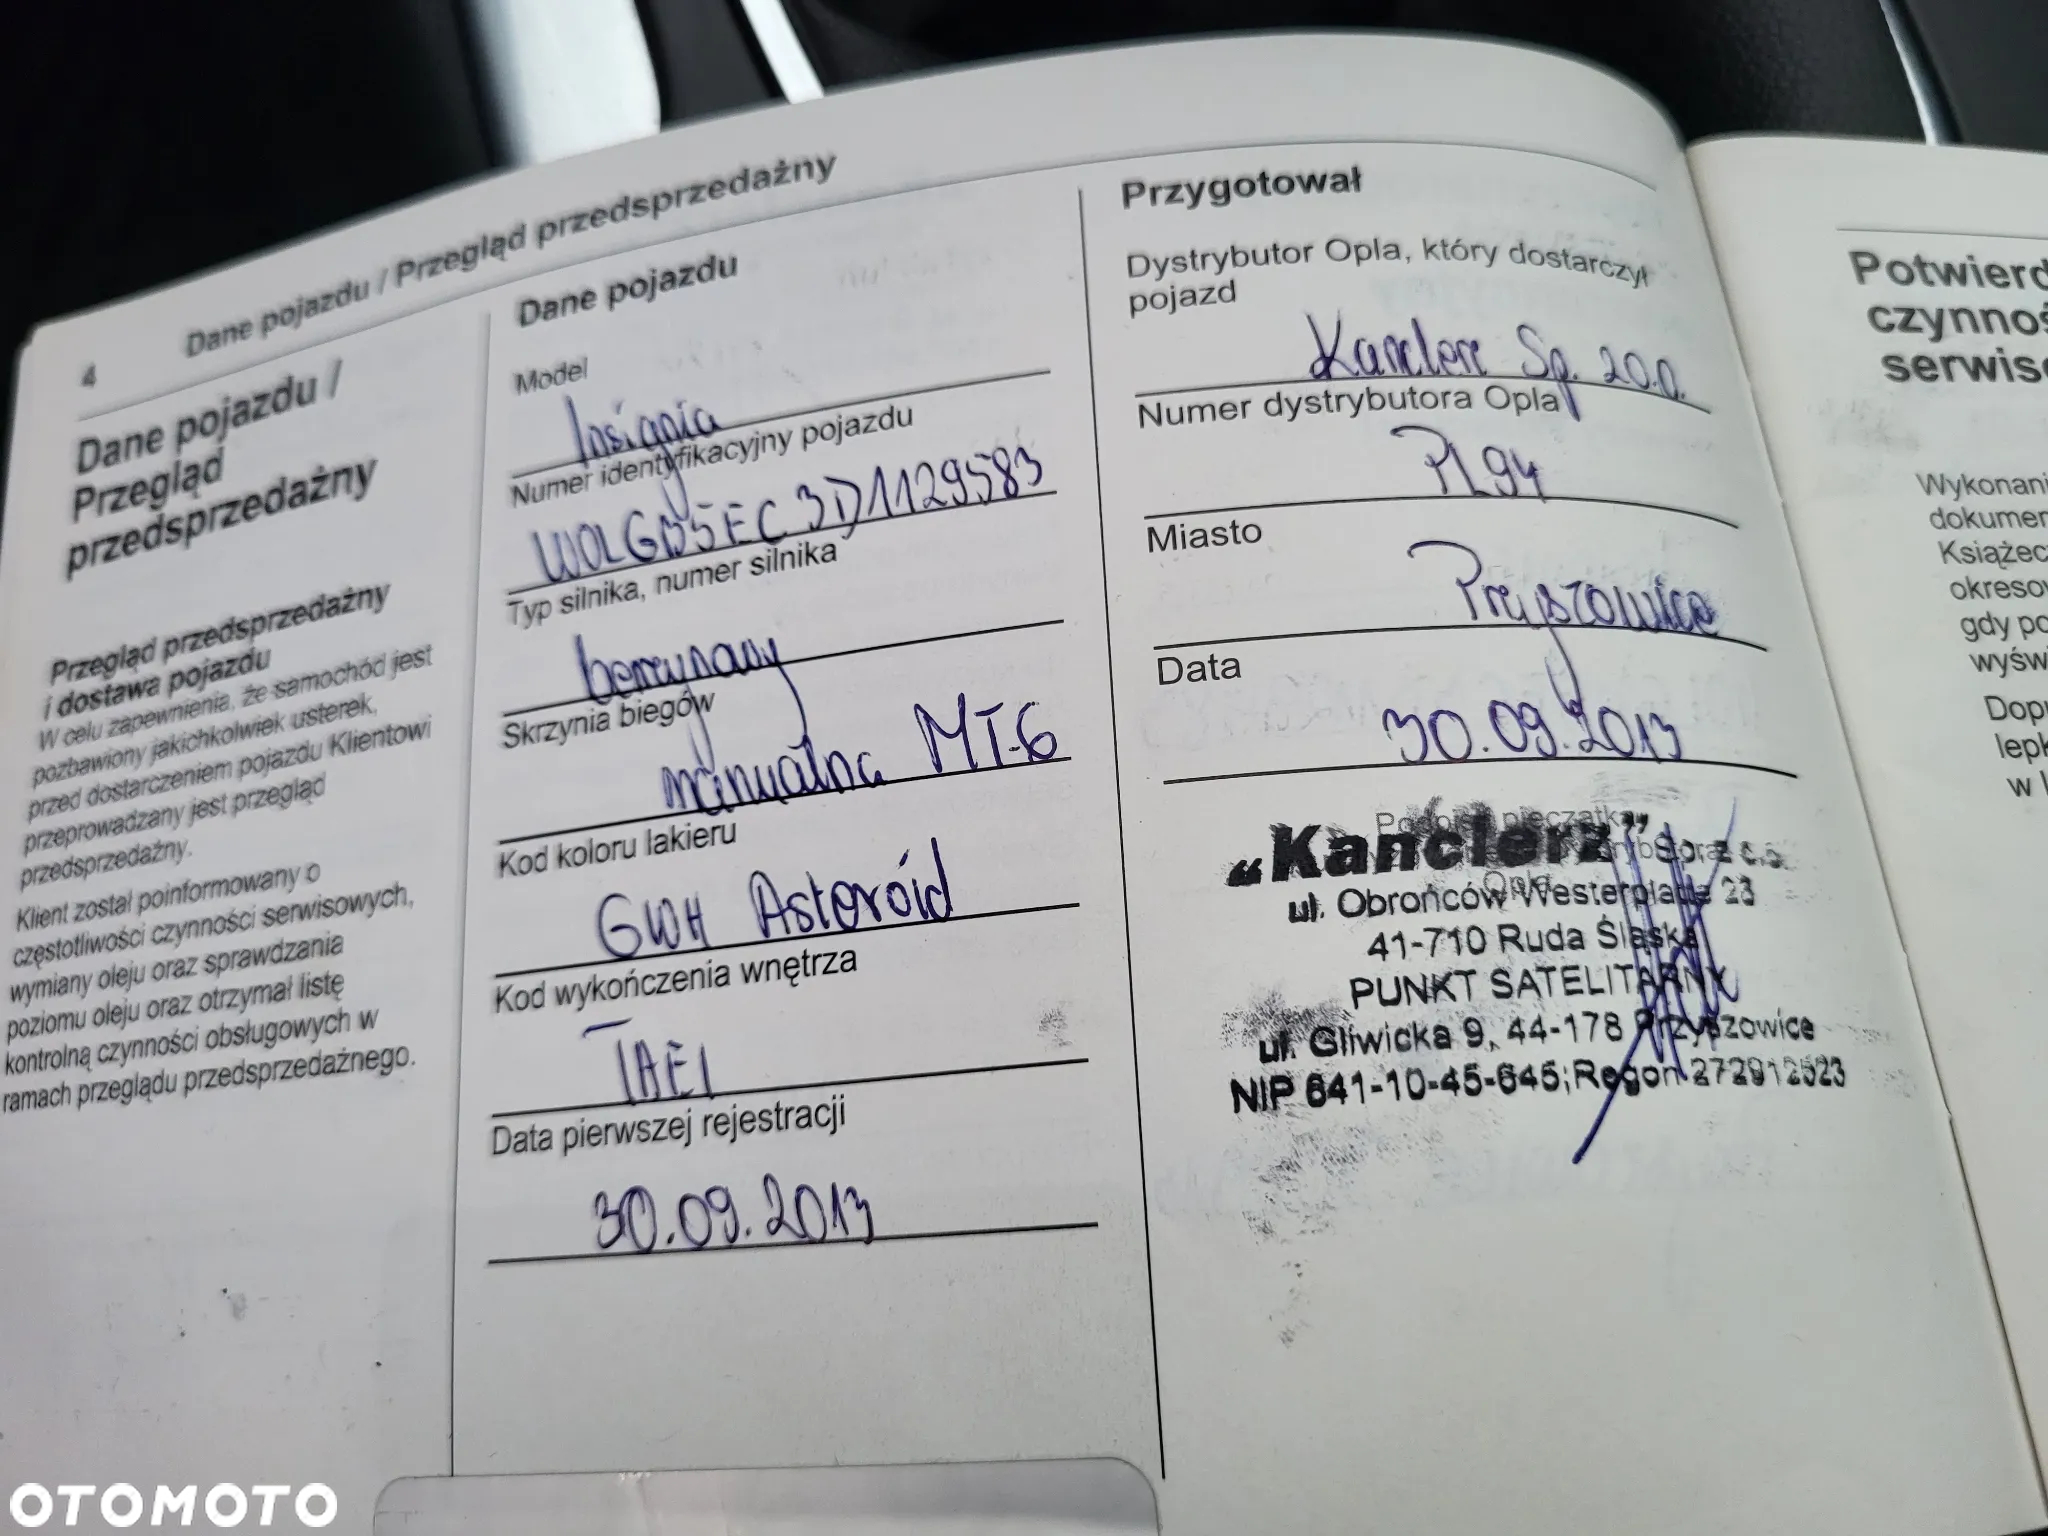 4
Dane pojazdu / Przegląd przedsprzedażny
Dane pojazdu /
Przegląd
przedsprzedażny
Przegląd przedsprzedażny
i dostawa pojazdu
W celu zapewnienia, że samochód jest
pozbawiony jakichkolwiek usterek,
przed dostarczeniem pojazdu Klientowi
przeprowadzany jest przegląd
przedsprzedażny.
Klient został poinformowany o
częstotliwości czynności serwisowych,
wymiany oleju oraz sprawdzania
poziomu oleju oraz otrzymał listę
kontrolną czynności obsługowych w
ramach przeglądu przedsprzedażnego.
Dane pojazdu
Model
Insignia
Numer identyfikacyjny pojazdu
W0LGB5EC3D1129583
Typ silnika, numer silnika
benzynowy
Skrzynia biegów
manualna MT-6
Kod koloru lakieru
GWH Asteroid
Kod wykończenia wnętrza
TAEI
Data pierwszej rejestracji
30.09.2013
Przygotował
Dystrybutor Opla, który dostarczył
pojazd
Kanclerz Sp. z o.o.
Numer dystrybutora Opla
PL94
Miasto
Przyszowice
Data
30.09.2013
„Kanclerz” Sp. z o.o.
ul. Obrońców Westerplatte 23
41-710 Ruda Śląska
PUNKT SATELITARNY
ul. Gliwicka 9, 44-178 Przyszowice
NIP 641-10-45-645; Regon 272912523
Potwierd
czynnoś
serwiso
Wykonani
dokumen
Książec
okresow
gdy po
wyświ
Dopu
lepk
w l
OTOMOTO